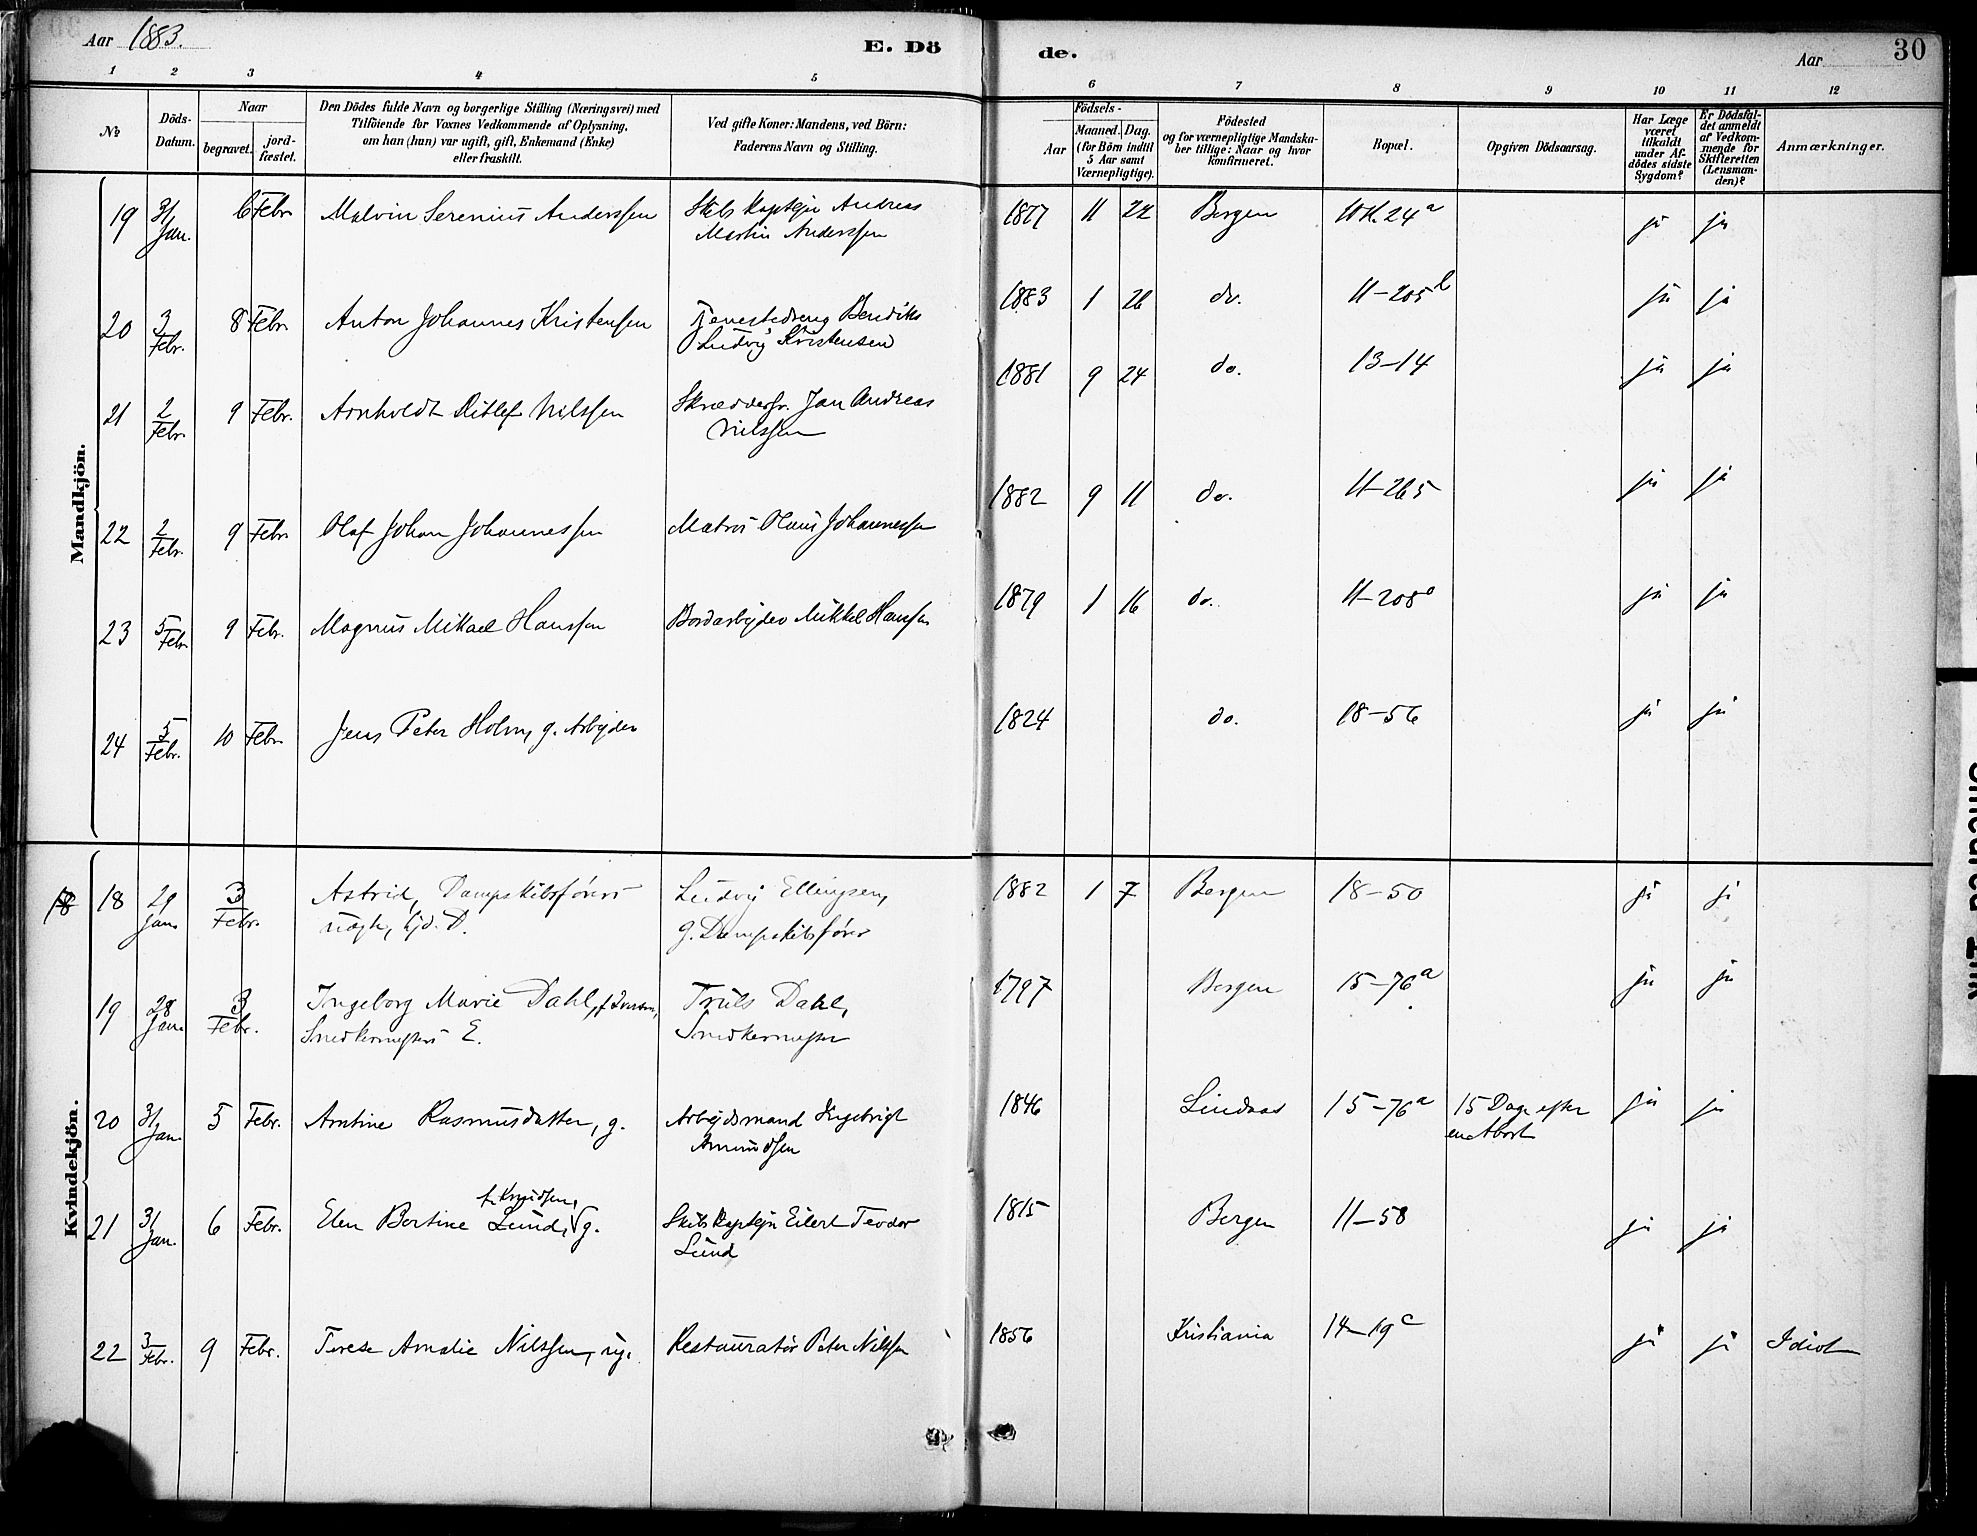 Aar 1883.
E. Dö
de.
Aar
30
1 2 3 4 5 6 7 8 9 10 11 12
№
Döds-
Datum.
Naar
begravet.
jord-
fæstet.
Den Dödes fulde Navn og borgerlige Stilling (Næringsvei) med
Tilföiende for Voxnes Vedkommende af Oplysning,
om han (hun) var ugift, gift, Enkemand (Enke)
eller fraskilt.
Ved gifte Koner: Mandens, ved Börn:
Faderens Navn og Stilling.
Födsels-
Aar
Maaned. Dag.
(for Börn indtil
5 Aar samt
Værnepligtige).
Födested
og for værnepligtige Mandska-
ber tillige: Naar og hvor
konfirmeret.
Bopæl.
Opgiven Dödsaarsag.
Har Læge
været
tilkaldt
under Af-
dödes sidste
Sygdom?
Er Dödsfal-
det anmeldt
af Vedkom-
mende for
Skifteretten
(Lensman-
den)?
Anmærkninger.
Mandkjön.
19 31 Jan. 6 Febr. Malvin Serenius Anderssen Skibskaptejn Andreas 1877 11 22 Bergen 10 Kl. 24a ja ja
Martin Anderssen
20 3 Febr. 8 Febr. Anton Johannes Kristensen Tjenestedreng Bendiks 1883 1 26 do. 11-205b ja ja
Ludvig Kristensen
21 2 Febr. 9 Febr. Arnholdt Ditlef Nilssen Skræddersv. Jan Andreas 1881 9 24 do. 13-14 ja ja
Nilssen
22 2 Febr. 9 Febr. Olaf Johan Johannessen Matros Olaus Johannessen 1882 9 11 do. 11-265 ja ja
23 5 Febr. 9 Febr. Magnus Mikael Hanssen Bordarbejder Mikkel Hanssen 1879 1 16 do. 11-208 ja ja
24 5 Febr. 10 Febr. Jens Peter Holm, g. Arbejder 1824 do. 18-56 ja ja
Kvindekjön.
18 29 Jan. 3 Febr. Astrid, Dampskibsförers Ludvig Ellingsen, 1882 1 7 Bergen 18-50 ja ja
D. g. Dampskibsförer
19 28 Jan. 3 Febr. Ingeborg Marie Dahl, Truls Dahl, 1797 Bergen 15-76a ja ja
Snedkermesters E. Snedkermester
20 31 Jan. 5 Febr. Arntine Rasmusdatter, g. Arbejdsmand Ingebrigt 1846 Lindaas 15-76a 15 Dage efter ja ja
Amundsen en Abort
f. Knudsen,
21 31 Jan. 6 Febr. Elen Bertine Lund, g. Skibskaptejn Eilert Teodor 1815 Bergen 11-58 ja ja
Lund
22 3 Febr. 9 Febr. Terese Amalie Nilssen, ug. Restauratör Peter Nilssen 1856 Kristiania 14-19c ja ja Idiot